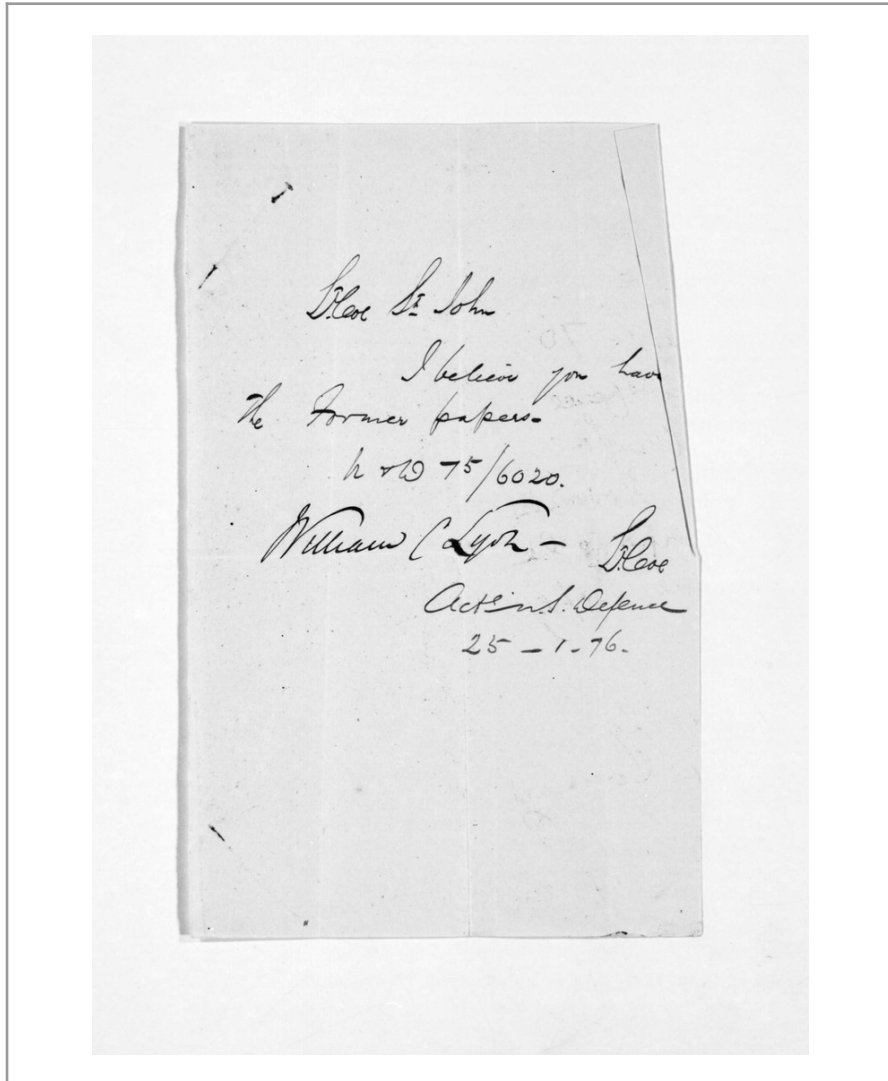 Lt. Col St. John
I believe you have
the Former papers.
N & D 75/6020.
William C Lyon - Lt. Col
Actg. U. S. Defence
25 - 1 - 76.